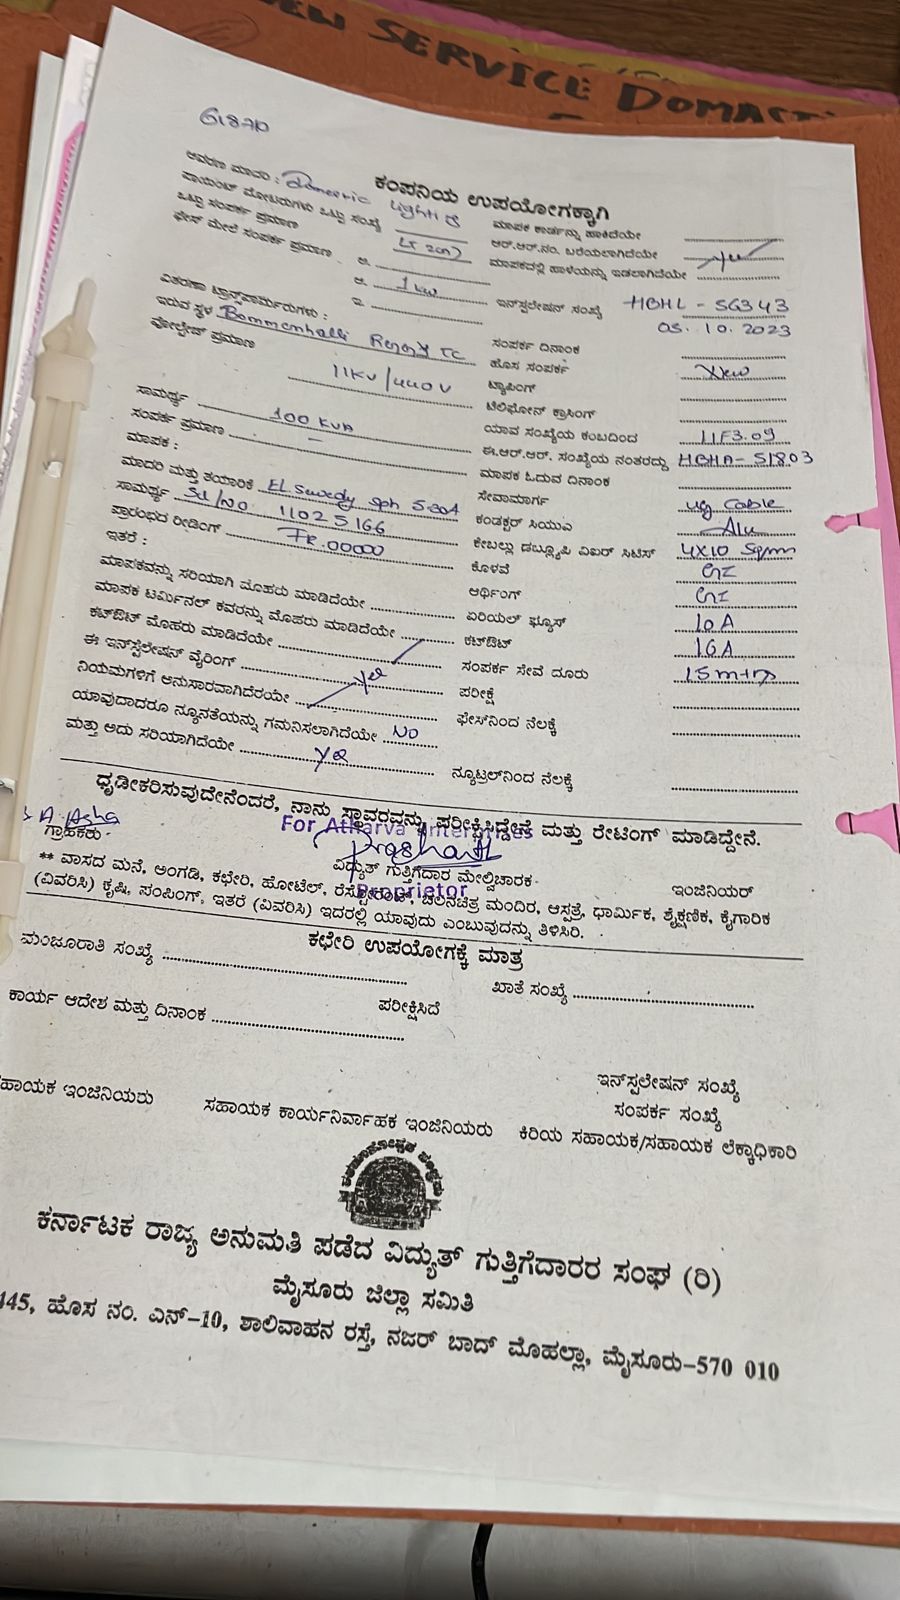 NEW SERVICE DOMAST
61870
ಕಂಪನಿಯ ಉಪಯೋಗಕ್ಕಾಗಿ
ಆವರಣ ಮಾದರಿ : Domestic Lighting
ಮಾಪಕ ಕಾರ್ಡನ್ನು ಹಾಕಿದೆಯೇ
ಪಾಯಿಂಟ್ ಮೋಟರುಗಳು ಒಟ್ಟು ಸಂಖ್ಯೆ
ಆರ್.ಆರ್.ನಂ. ಬರೆಯಲಾಗಿದೆಯೇ
ಒಟ್ಟು ಸಂಪರ್ಕ ಪ್ರಮಾಣ
ಮಾಪಕದಲ್ಲಿ ಹಾಳೆಯನ್ನು ಇಡಲಾಗಿದೆಯೇ
ಫೇಸ್ ಮೇಲೆ ಸಂಪರ್ಕ ಪ್ರಮಾಣ
ಆ. 1 kw
ಇ.
ಇನ್‌ಸ್ಪಲೇಷನ್ ಸಂಖ್ಯೆ HBHL - 56343
05.10.2023
ವಿತರಣಾ ಟ್ರಾನ್ಸ್‌ಫಾರ್ಮರುಗಳು :
ಸಂಪರ್ಕ ದಿನಾಂಕ
ಇರುವ ಸ್ಥಳ Bommenhalli TC
ಹೊಸ ಸಂಪರ್ಕ New
ವೋಲ್ಟೇಜ್ ಪ್ರಮಾಣ 11KV/440V
ಟ್ಯಾಪಿಂಗ್
ಟೆಲಿಫೋನ್ ಕ್ರಾಸಿಂಗ್
ಸಾಮರ್ಥ್ಯ 100 KVA
ಯಾವ ಸಂಖ್ಯೆಯ ಕಂಬದಿಂದ 11F3.09
ಸಂಪರ್ಕ ಪ್ರಮಾಣ -
ಈ.ಆರ್.ಆರ್. ಸಂಖ್ಯೆಯ ನಂತರದ್ದು HBHA- 51803
ಮಾಪಕ :
ಮಾಪಕ ಓದುವ ದಿನಾಂಕ
ಮಾದರಿ ಮತ್ತು ತಯಾರಿಕೆ EL Sewedy Sph 5-30A
ಸೇವಾಮಾರ್ಗ ug Cable
ಸಾಮರ್ಥ್ಯ Sl/No. 11025166
ಕಂಡಕ್ಟರ್ ಸಿಯುಎ Alu
ಪ್ರಾರಂಭದ ರೀಡಿಂಗ್ FR.00000
ಕೇಬಲ್ಲು ಡಬ್ಲ್ಯೂಪಿ ವಿಖರ್ ಸಿಟಿಸ್ 4X10 Sqmm
ಇತರೆ :
ಕೊಳವೆ GI
ಮಾಪಕವನ್ನು ಸರಿಯಾಗಿ ಮೊಹರು ಮಾಡಿದೆಯೇ
ಆರ್ಥಿಂಗ್ GI
ಮಾಪಕ ಟರ್ಮಿನಲ್ ಕವರನ್ನು ಮೊಹರು ಮಾಡಿದೆಯೇ
ಏರಿಯಲ್ ಫ್ಯೂಸ್ 10A
ಕಟ್‌ಔಟ್ ಮೊಹರು ಮಾಡಿದೆಯೇ
ಕಟ್‌ಔಟ್ 16A
ಈ ಇನ್‌ಸ್ಪೆಲೇಷನ್ ವೈರಿಂಗ್ yes
ಸಂಪರ್ಕ ಸೇವೆ ದೂರು 15mtrs
ನಿಯಮಗಳಿಗೆ ಅನುಸಾರವಾಗಿದೆರಯೇ
ಪರೀಕ್ಷೆ
ಯಾವುದಾದರೂ ನ್ಯೂನತೆಯನ್ನು ಗಮನಿಸಲಾಗಿದೆಯೇ NO
ಫೇಸ್‌ನಿಂದ ನೆಲಕ್ಕೆ
ಮತ್ತು ಅದು ಸರಿಯಾಗಿದೆಯೇ yes
ನ್ಯೂಟ್ರಲ್‌ನಿಂದ ನೆಲಕ್ಕೆ
ಧೃಡೀಕರಿಸುವುದೇನೆಂದರೆ, ನಾನು ಸ್ಥಾವರವನ್ನು ಪರೀಕ್ಷಿಸಿದ್ದೇನೆ ಮತ್ತು ರೇಟಿಂಗ್ ಮಾಡಿದ್ದೇನೆ.
A. Asha
For Atharva Enterprises
ಗ್ರಾಹಕರು
Prashanth
ವಿದ್ಯುತ್ ಗುತ್ತಿಗೆದಾರ ಮೇಲ್ವಿಚಾರಕ
ಇಂಜಿನಿಯರ್
Proprietor
** ವಾಸದ ಮನೆ, ಅಂಗಡಿ, ಕಛೇರಿ, ಹೋಟೆಲ್, ರೆಸ್ಟೋರೆಂಟ್, ಚಲನಚಿತ್ರ ಮಂದಿರ, ಆಸ್ಪತ್ರೆ, ಧಾರ್ಮಿಕ, ಶೈಕ್ಷಣಿಕ, ಕೈಗಾರಿಕ
(ವಿವರಿಸಿ) ಕೃಷಿ, ಪಂಪಿಂಗ್, ಇತರೆ (ವಿವರಿಸಿ) ಇದರಲ್ಲಿ ಯಾವುದು ಎಂಬುವುದನ್ನು ತಿಳಿಸಿರಿ.
ಕಛೇರಿ ಉಪಯೋಗಕ್ಕೆ ಮಾತ್ರ
ಮಂಜೂರಾತಿ ಸಂಖ್ಯೆ
ಖಾತೆ ಸಂಖ್ಯೆ
ಕಾರ್ಯ ಆದೇಶ ಮತ್ತು ದಿನಾಂಕ
ಪರೀಕ್ಷಿಸಿದೆ
ಇನ್‌ಸ್ಪಲೇಷನ್ ಸಂಖ್ಯೆ
ಸಂಪರ್ಕ ಸಂಖ್ಯೆ
ಹಾಯಕ ಇಂಜಿನಿಯರು
ಸಹಾಯಕ ಕಾರ್ಯನಿರ್ವಾಹಕ ಇಂಜಿನಿಯರು
ಕಿರಿಯ ಸಹಾಯಕ/ಸಹಾಯಕ ಲೆಕ್ಕಾಧಿಕಾರಿ
ಕರ್ನಾಟಕ ರಾಜ್ಯ ಅನುಮತಿ ಪಡೆದ ವಿದ್ಯುತ್ ಗುತ್ತಿಗೆದಾರರ ಸಂಘ (ರಿ)
ಮೈಸೂರು ಜಿಲ್ಲಾ ಸಮಿತಿ
445, ಹೊಸ ನಂ. ಎನ್-10, ಶಾಲಿವಾಹನ ರಸ್ತೆ, ನಜರ್ ಬಾದ್ ಮೊಹಲ್ಲಾ, ಮೈಸೂರು-570 010